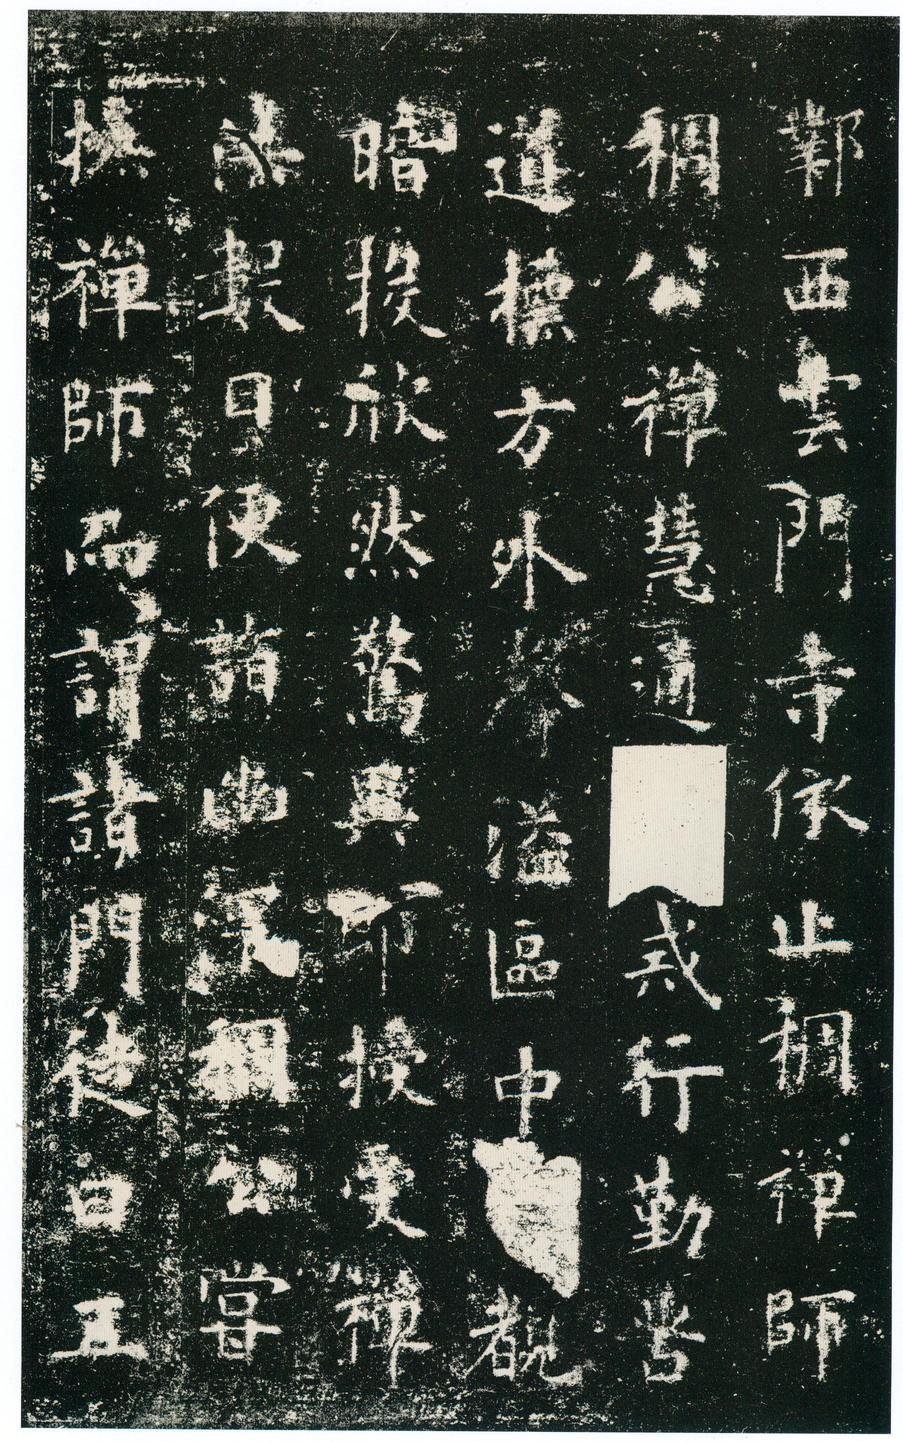 鄴西雲門寺依止稠禪師
稠公禪慧通戒行勤苦
道標方外聲溢區中觀
暗投欣然驚異即授受禪
謀數日便詣幽深稠公嘗
撫禪師而謂諸門徒曰五